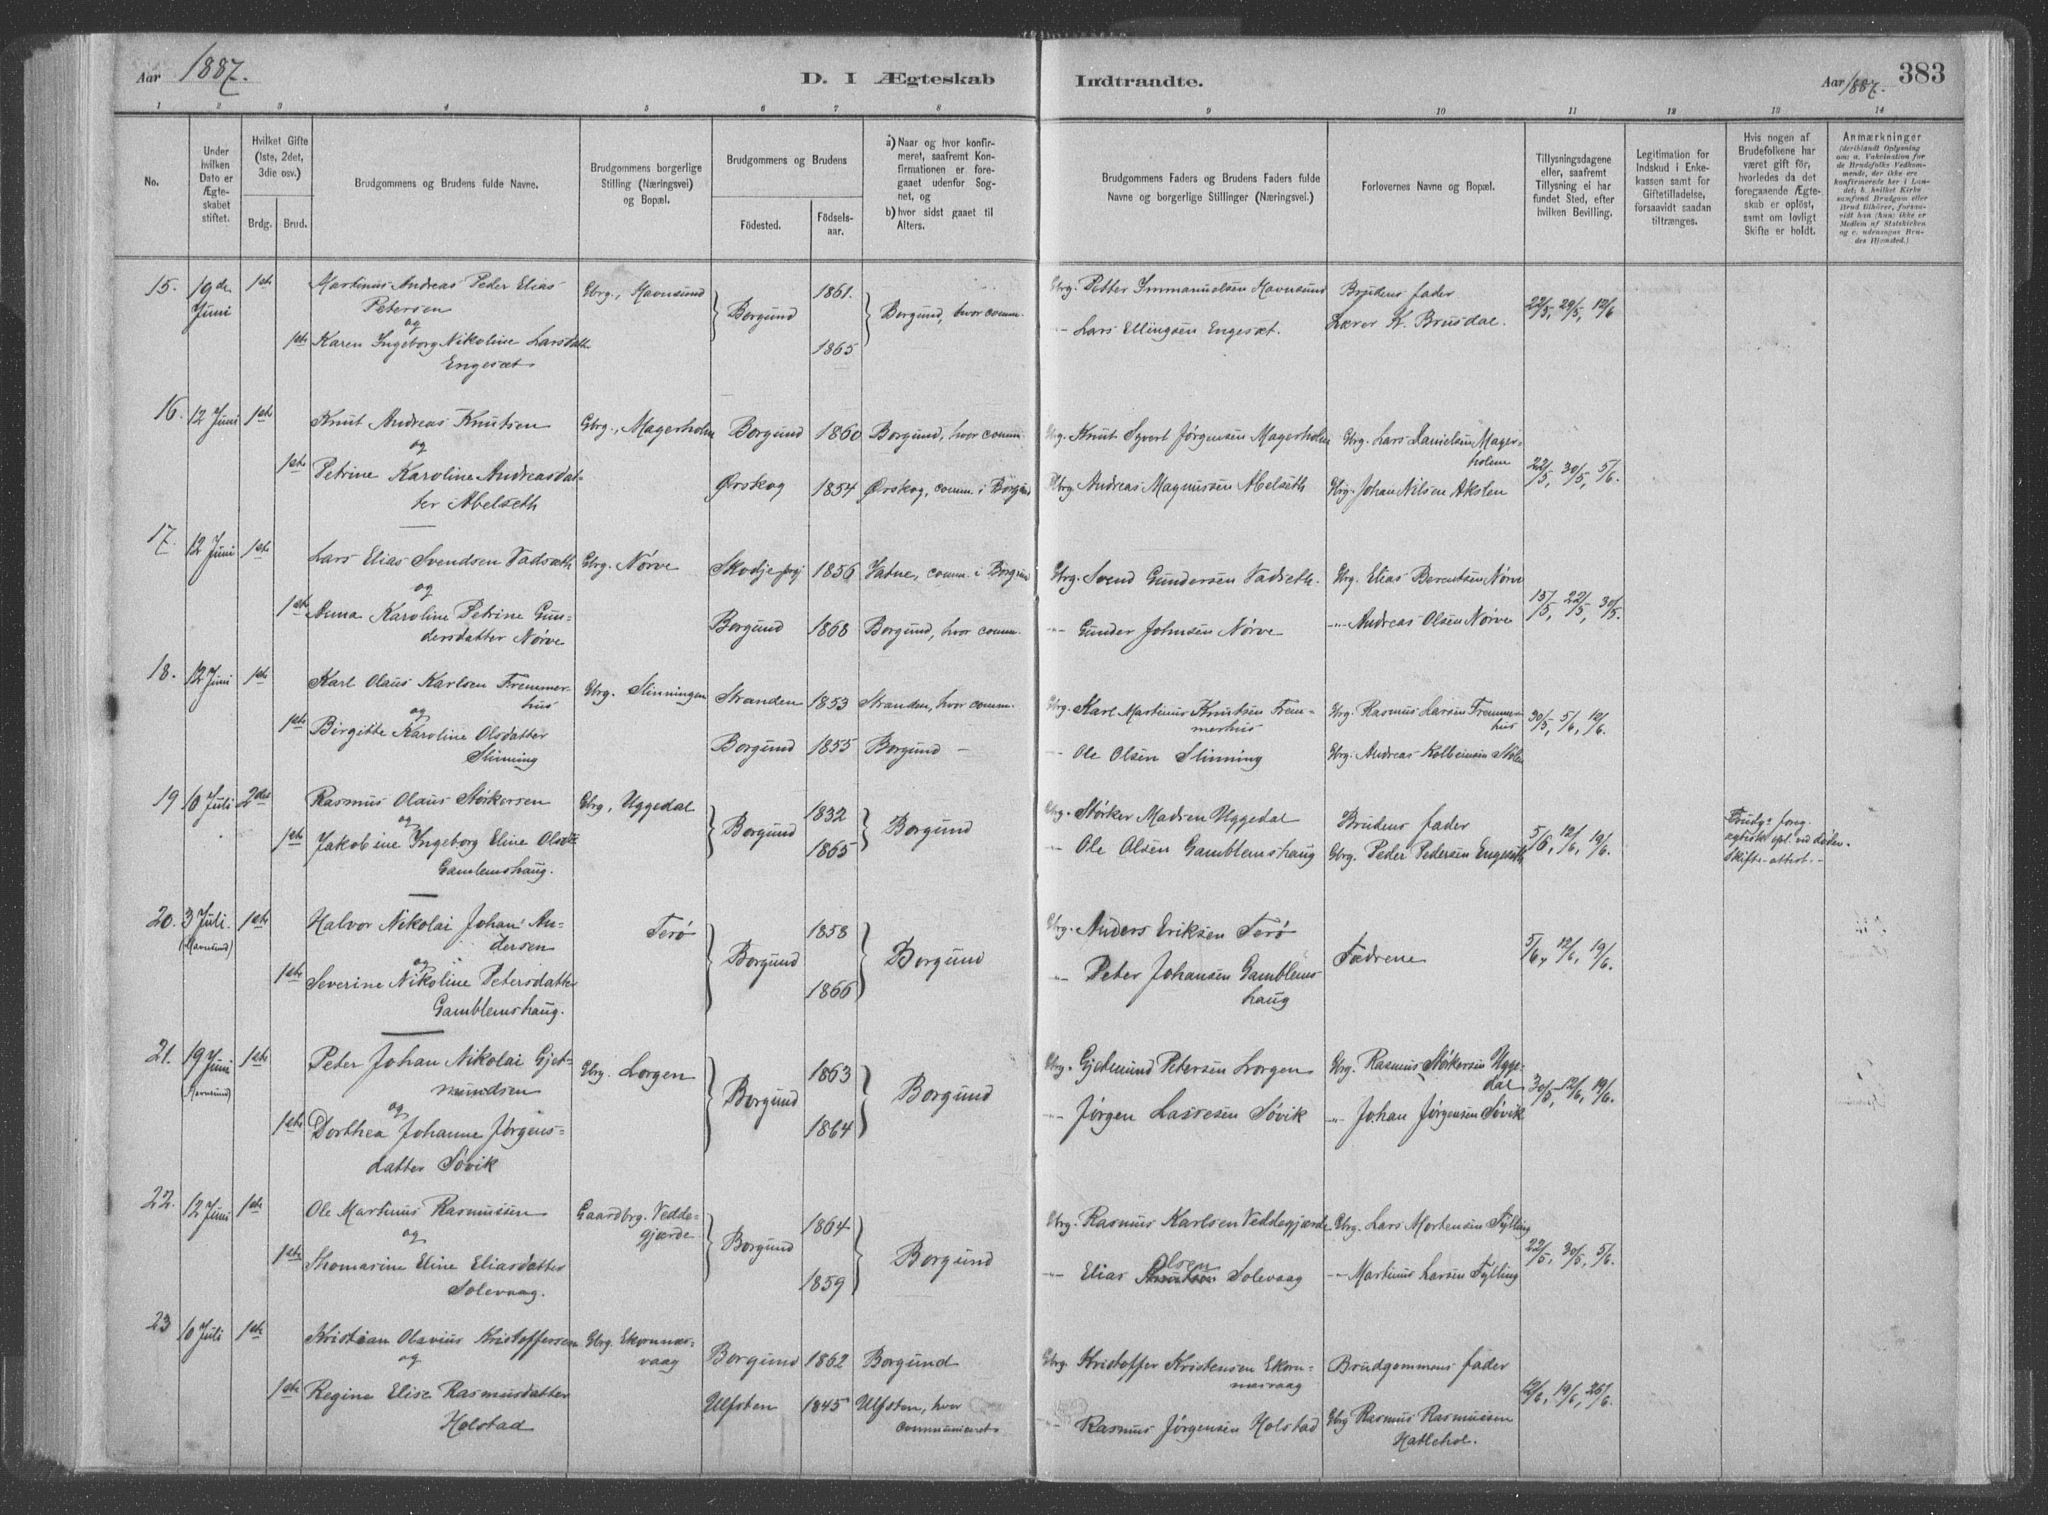 Aar 1887.
D. I Ægteskab
Indtraadte.
Aar 1887.
383
1 2 3 4 5 6 7 8 9 10 11 12 13 14
No.
Under hvilken Dato er Ægteskabet stiftet.
Hvilket Gifte (1ste, 2det, 3die osv.)
Brdg. Brud.
Brudgommens og Brudens fulde Navne.
Brudgommens borgerlige Stilling (Næringsvei) og Bopæl.
Brudgommens og Brudens
Födested. Födsels-aar.
a) Naar og hvor konfirmeret, saafremt Konfirmationen er foregaaet udenfor Sognet, og
b) hvor sidst gaaet til Alters.
Brudgommens Faders og Brudens Faders fulde Navne og borgerlige Stillinger (Næringsvei.)
Forlovernes Navne og Bopæl.
Tillysningsdagene eller, saafremt Tillysning ei har fundet Sted, efter hvilken Bevilling.
Legitimation for Indskud i Enkekassen samt for Giftetilladelse, forsaavidt saadan tiltrænges.
Hvis nogen af Brudefolkene har været gift för, hvorledes da det foregaaende Ægteskab er oplöst, samt om lovligt Skifte er holdt.
Anmærkninger
15. 19de Juni 1ste Martinus Andreas Peder Elias Petersen Gbrg., Havnsund Borgund 1861. Borgund, hvor comm. Gbrg. Petter Immanuelsen Havnsund Brudens fader 22/5, 29/5, 12/6
og
1ste Karen Ingeborg Nikoline Larsdatt Engesæt 1865 Lars Ellingsen Engesæt. Lærer K. Brusdal.
16. 12 Juni 1ste Knut Andreas Knutsen Gbrg., Magerholm Borgund 1860 Borgund, hvor comm. Gbrg. Knut Syvert Jørgensen Magerholm Gbrg. Lars Danielsen Magerholm 22/5, 30/5, 5/6.
og
1ste Petrine Karoline Andreasdatter Abelseth Ørskog 1854 Ørskog, comm. i Borgund Gbrg. Andreas Magnussen Abelseth Gbrg. Johan Nilsen Akslen
17. 12 Juni 1ste Lars Elias Svendsen Vadsæth Gbrg. Nørve Skodje 1856 Vatne, comm. i Borgund Gbrg. Svend Gundersen Vadseth. Gbrg. Elias Berentsen Nørve 15/5, 22/5, 30/5.
og
1ste Anna Karoline Petrine Gundersdatter Nørve Borgund 1868 Borgund, hvor comm. Gunder Johnsen Nørve Andreas Olsen Nørve
18. 12 Juni 1ste Karl Olaus Karlsen Fremmerhus Gbrg. Slinningen Stranden 1853 Stranden, hvor comm. Gbrg. Karl Martinus Knutsen Fremmerhus Gbrg. Rasmus Larsen Fremmerhus 30/5, 5/6, 12/6.
og
1ste Birgitte Karoline Olsdatter Slinning Borgund 1855 Borgund – Ole Olsen Slinning Gbrg. Andreas Kolbeinsen Stølen
19 10 Juli 2det Rasmus Olaus Størkersen Gbrg, Uggedal Borgund 1832 Borgund Gbrg. Størker Madsen Uggedal Brudens fader 5/6, 12/6, 19/6.
og
1ste Jakobine Ingeborg Eline Olsd. Gamlemshaug. 1865 Ole Olsen Gamblemshaug Gbrg. Peder Pedersen Engeseth
20. 3 Juli. (Havnsund) 1ste Halvor Nikolai Johan Andersen Terø Borgund 1858 Borgund Gbrg. Anders Eriksen Terø Fædrene 5/6, 12/6, 19/6.
og
1ste Severine Nikoline Petersdatter Gamblemshaug. 1866 Peter Johansen Gamblemshaug
21. 19 Juni (Havnsund) 1ste Peter Johan Nikolai Gjetmundsen Gbrg. Lorgen Borgund 1863 Borgund Gbrg. Gjetmund Petersen Lorgen Gbrg. Rasmus Størkersen Uggedal 30/5, 12/6, 19/6.
og
1ste Dorthea Johanne Jørgensdatter Søvik 1864 Jørgen Lassesen Søvik Johan Jørgensen Søvik
22. 12 Juni 1ste Ole Martinus Rasmussen Gaardbrg. Veddegjærde Borgund 1864 Borgund Gbrg. Rasmus Karlsen Veddegjærde Gbrg. Lars Mortensen Fylling 22/5, 30/5, 5/6.
og
1ste Thomarine Eline Eliasdatter Solevaag. 1859 Elias Olsen Solevaag Martinus Larsen Fylling
23 10 Juli 1ste Kristian Olavius Kristoffersen Gbrg. Ekornæsvaag Borgund 1862 Borgund Gbrg. Kristoffer Kristensen Ekornnæsvaag Brudgommens fader 12/6, 19/6, 26/6.
og
1ste Regine Elise Rasmusdatter Holstad Ulfsten 1845 Ulfsten, hvor communiceret. Rasmus Jørgensen Holstad Gbrg Rasmus Rasmussen Hatlehol.